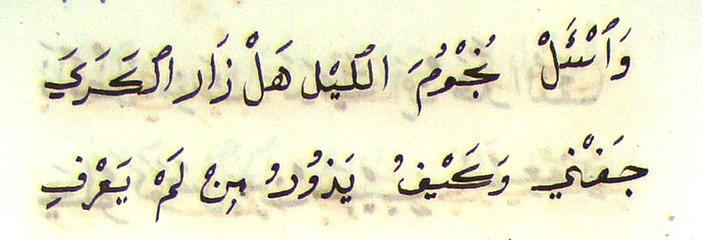 وَٱسْئَلْ نُجُوْمَ الليْل هَلْ زَار ٱلكَرَيَ
جَفْني وَكَيْفُ يَزوُرُ مِنْ لَمْ يَعْرفِ